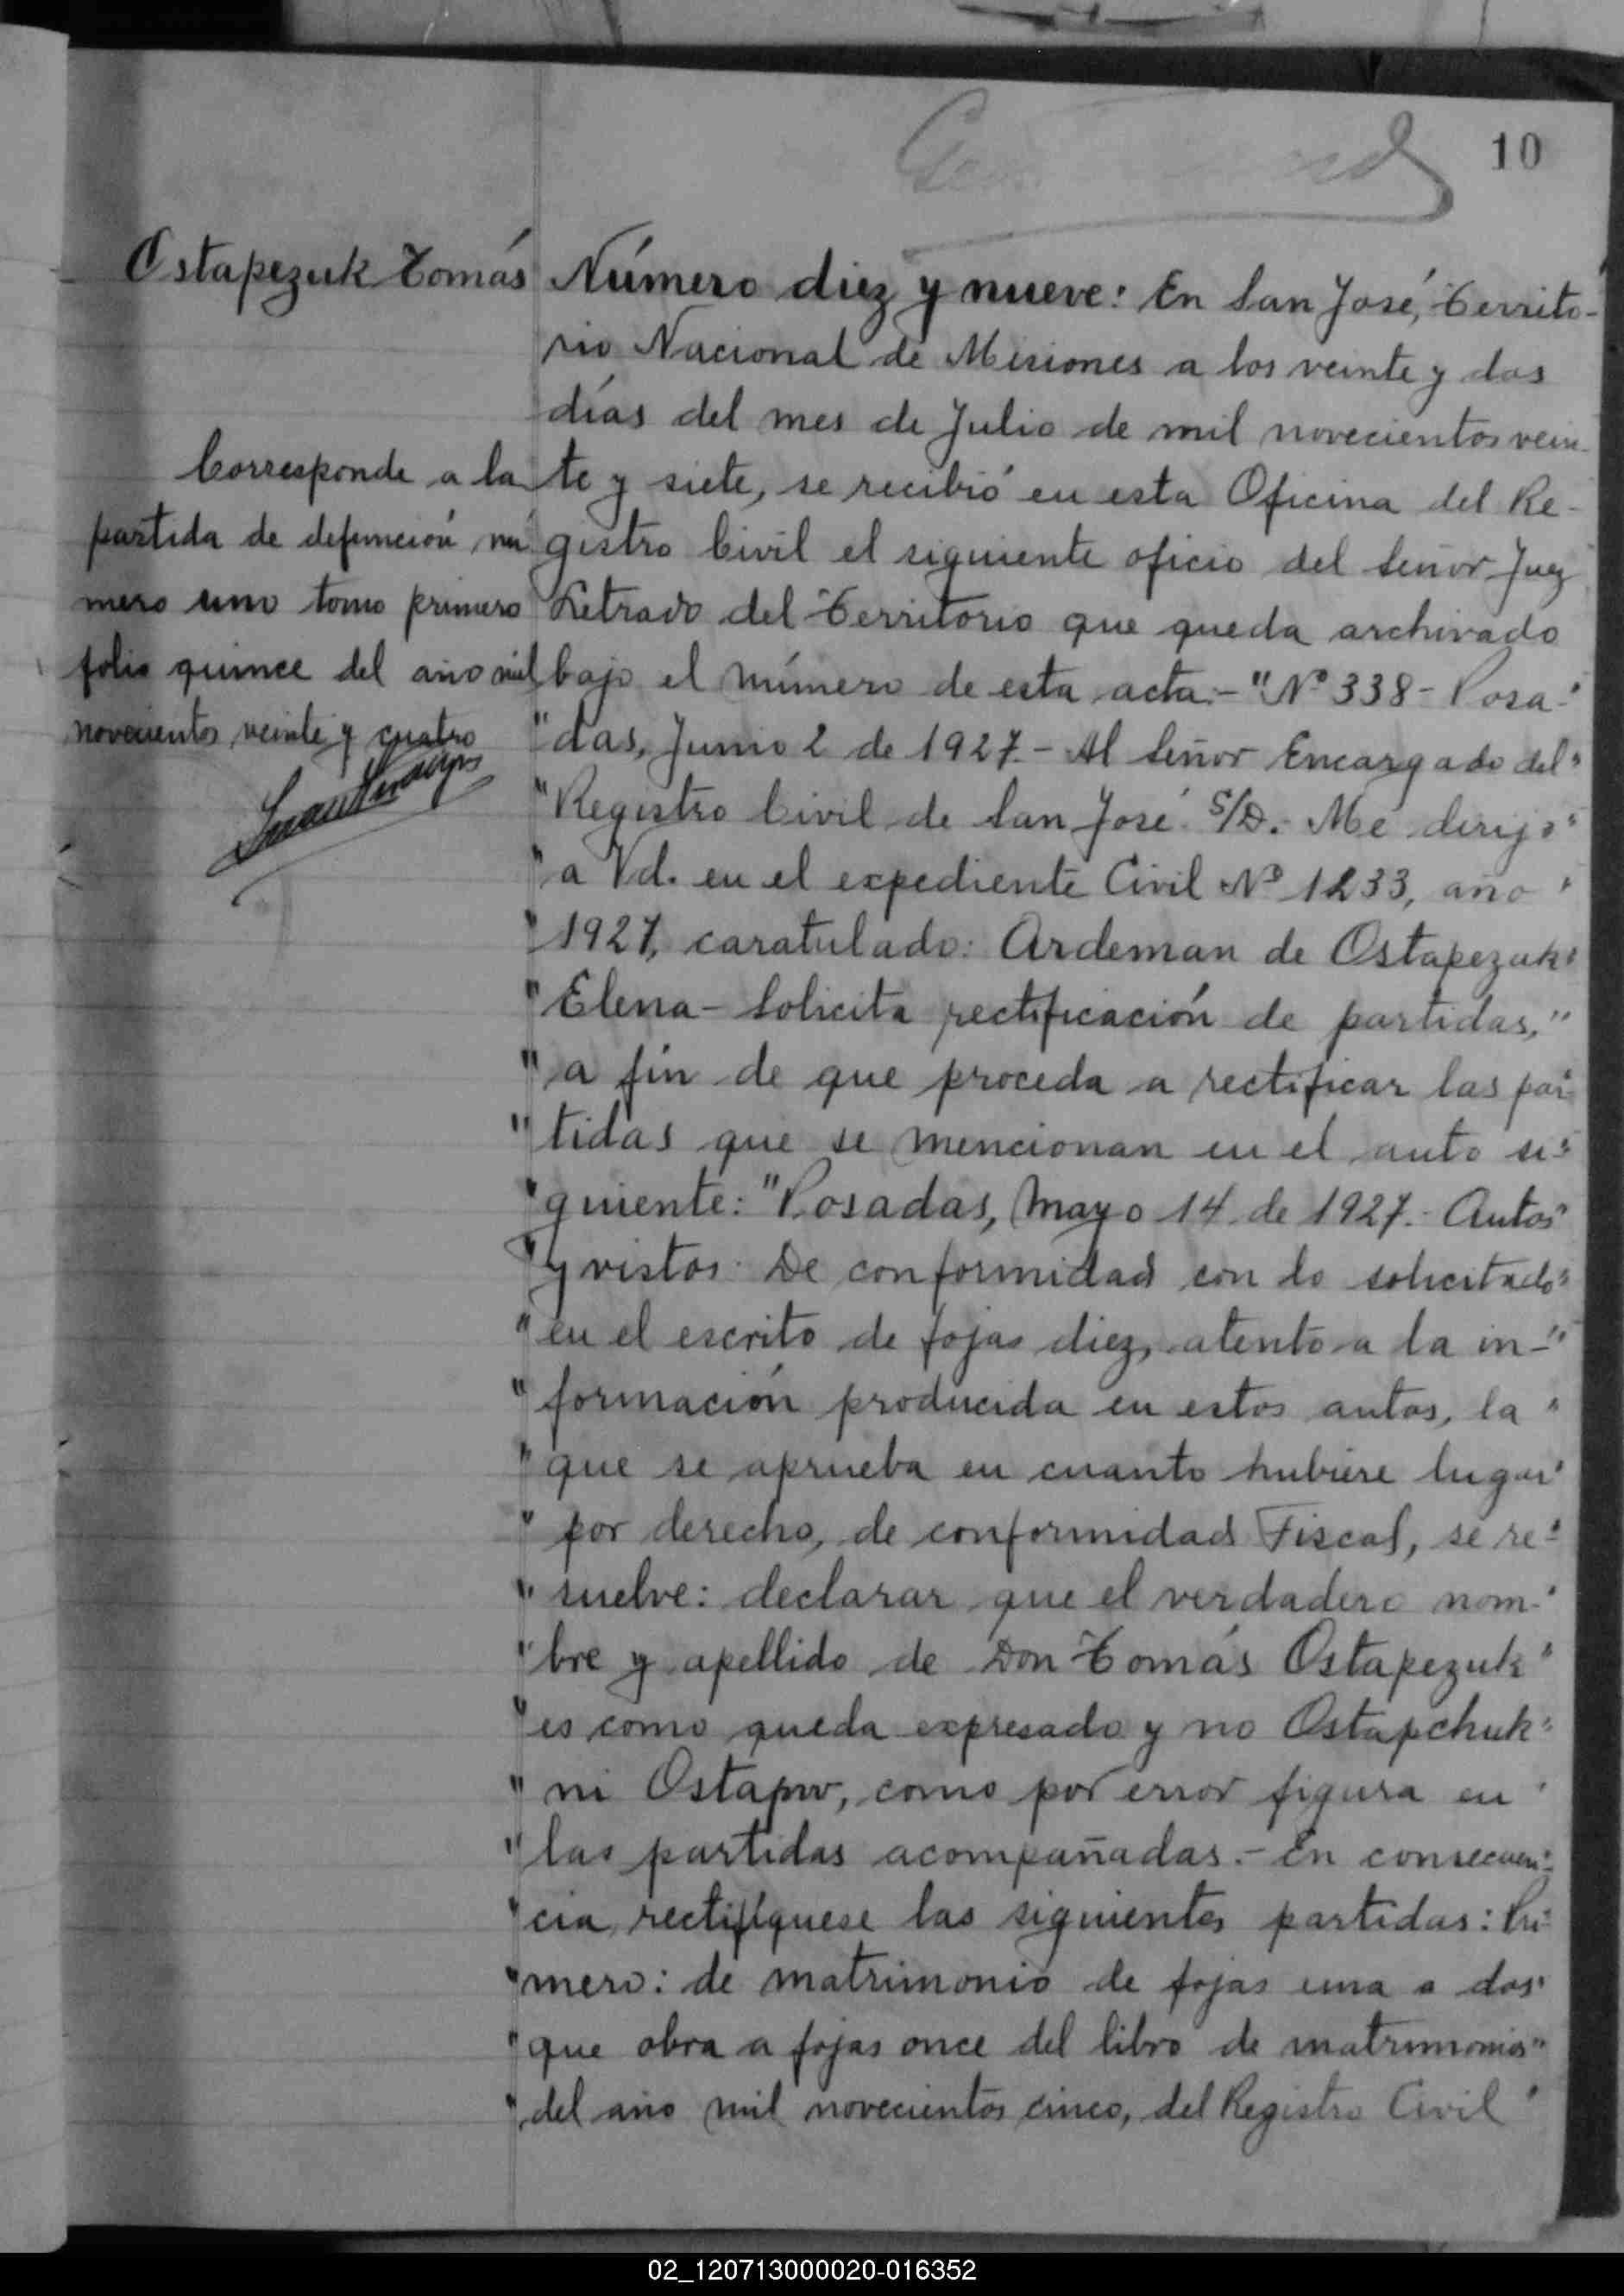 10
Ostapezuk Tomás
Corresponde a la
partida de defunción nú
mero uno tomo primero
folio quince del año mil
novecientos veinte y cuatro
Número diez y nueve: En San José, Territo-
rio Nacional de Misiones a los veinte y dos
días del mes de Julio de mil novecientos vein-
te y siete, se recibió en esta Oficina del Re-
gistro Civil el siguiente oficio del Señor Juez
Letrado del Territorio que queda archivado
bajo el número de esta acta:- "Nº 338- Posa-"
"das, Junio 2 de 1927.- Al Señor Encargado del"
"Registro Civil de San José. S/D.- Me dirijo"
"a Vd. en el expediente Civil Nº 1233, año"
"1927, caratulado: Ardeman de Ostapezuk"
"Elena- Solicita rectificación de partidas,"
"a fin de que proceda a rectificar las par-"
"tidas que se mencionan en el auto si-"
"guiente: "Posadas, Mayo 14 de 1927.- Autos"
"y vistos: De conformidad con lo solicitado"
"en el escrito de fojas diez, atento a la in-"
"formación producida en estos autos, la"
"que se aprueba en cuanto hubiere lugar"
"por derecho, de conformidad Fiscal, se re-"
"suelve: declarar que el verdadero nom-"
"bre y apellido de Don Tomás Ostapezuk"
"es como queda expresado y no Ostapchuk"
"ni Ostapw, como por error figura en"
"las partidas acompañadas.- En consecuen-"
"cia, rectifíquese las siguientes partidas: Pri-"
"mero: de matrimonio de fojas una a dos"
"que obra a fojas once del libro de matrimonios"
"del año mil novecientos cinco, del Registro Civil"
02_120713000020-016352